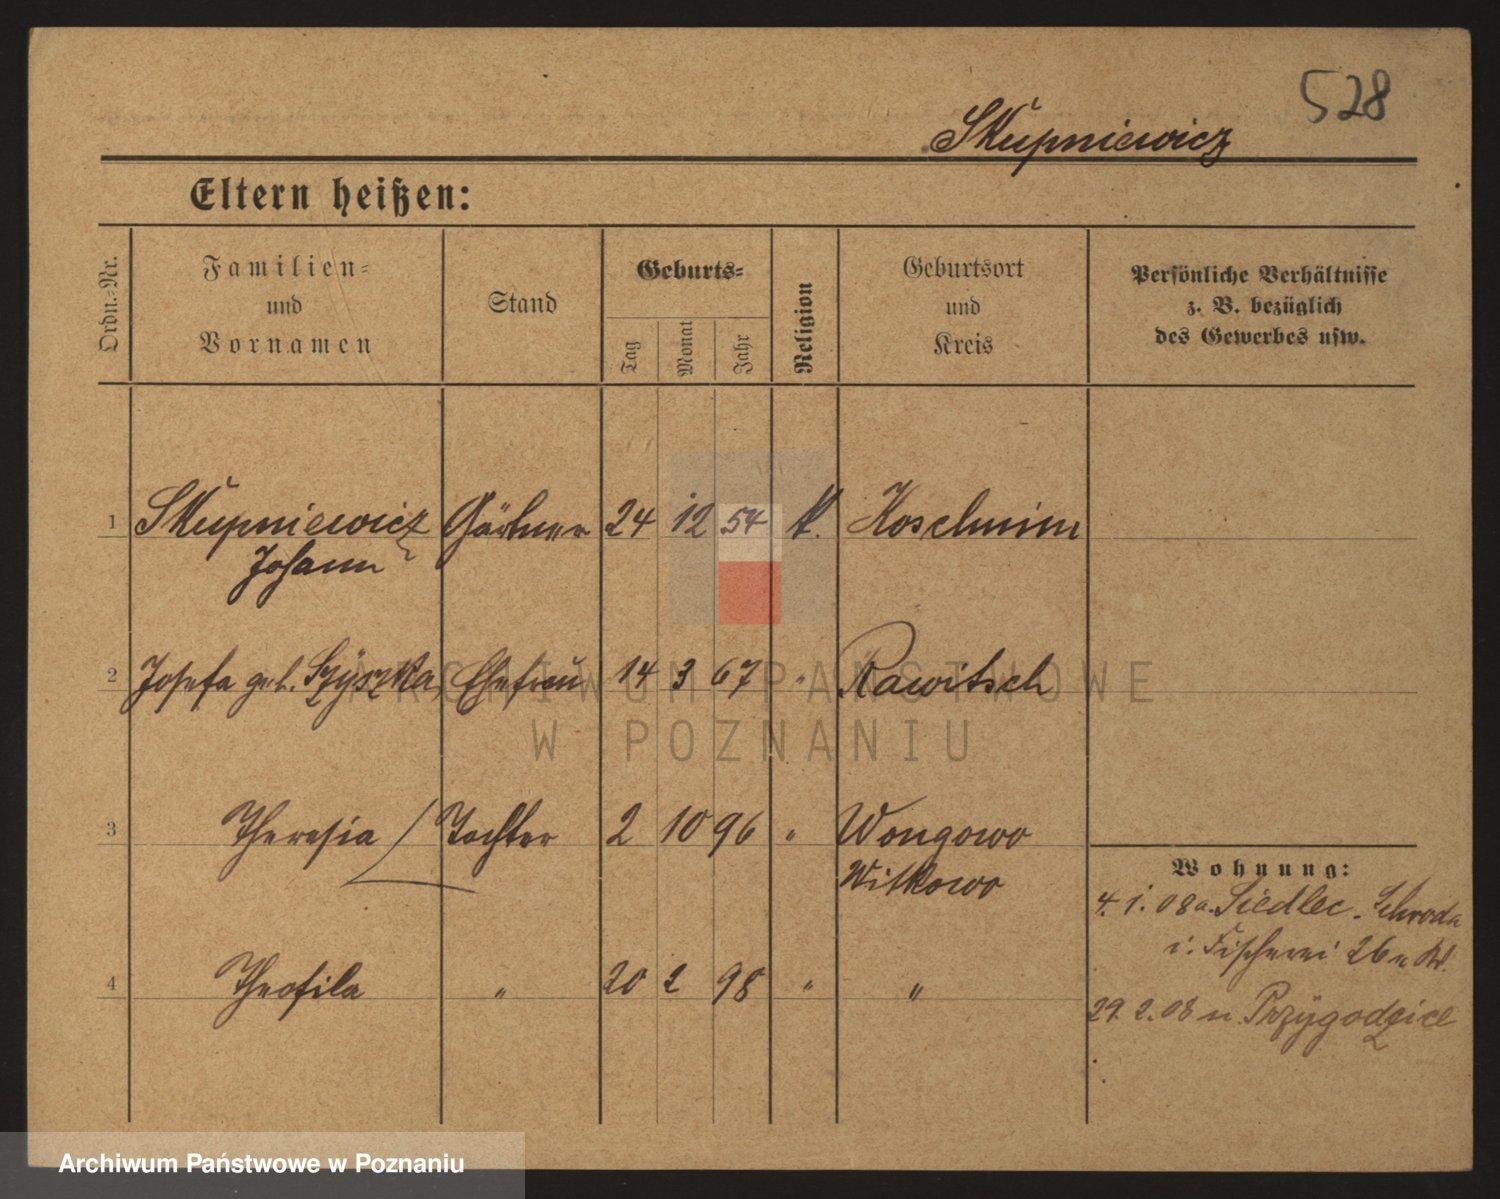 528
Skupniewicz
Eltern heißen:
Ordn.-Nr.
Familien-
und
Vornamen
Stand
Geburts-
Tag
Monat
Jahr
Religion
Geburtsort
und
Kreis
Persönliche Verhältnisse
z. B. bezüglich
des Gewerbes usw.
1 Skupniewicz Gärtner 24 12 54 k. Koschmin
Johann
2 Josefa geb. Szyszka, Ehefrau 14 3 67 " Rawitsch
3 Theresia Tochter 2 10 96 " Wongowo
Witkowo
4 Theofila " 20 2 98 " "
Wohnung:
4. 1. 08 a. Siedlec. Schroda
i. Fischerei 26
29. 2. 08 n. Przygodzice
ARCHIWUM PAŃSTWOWE
W POZNANIU
Archiwum Państwowe w Poznaniu